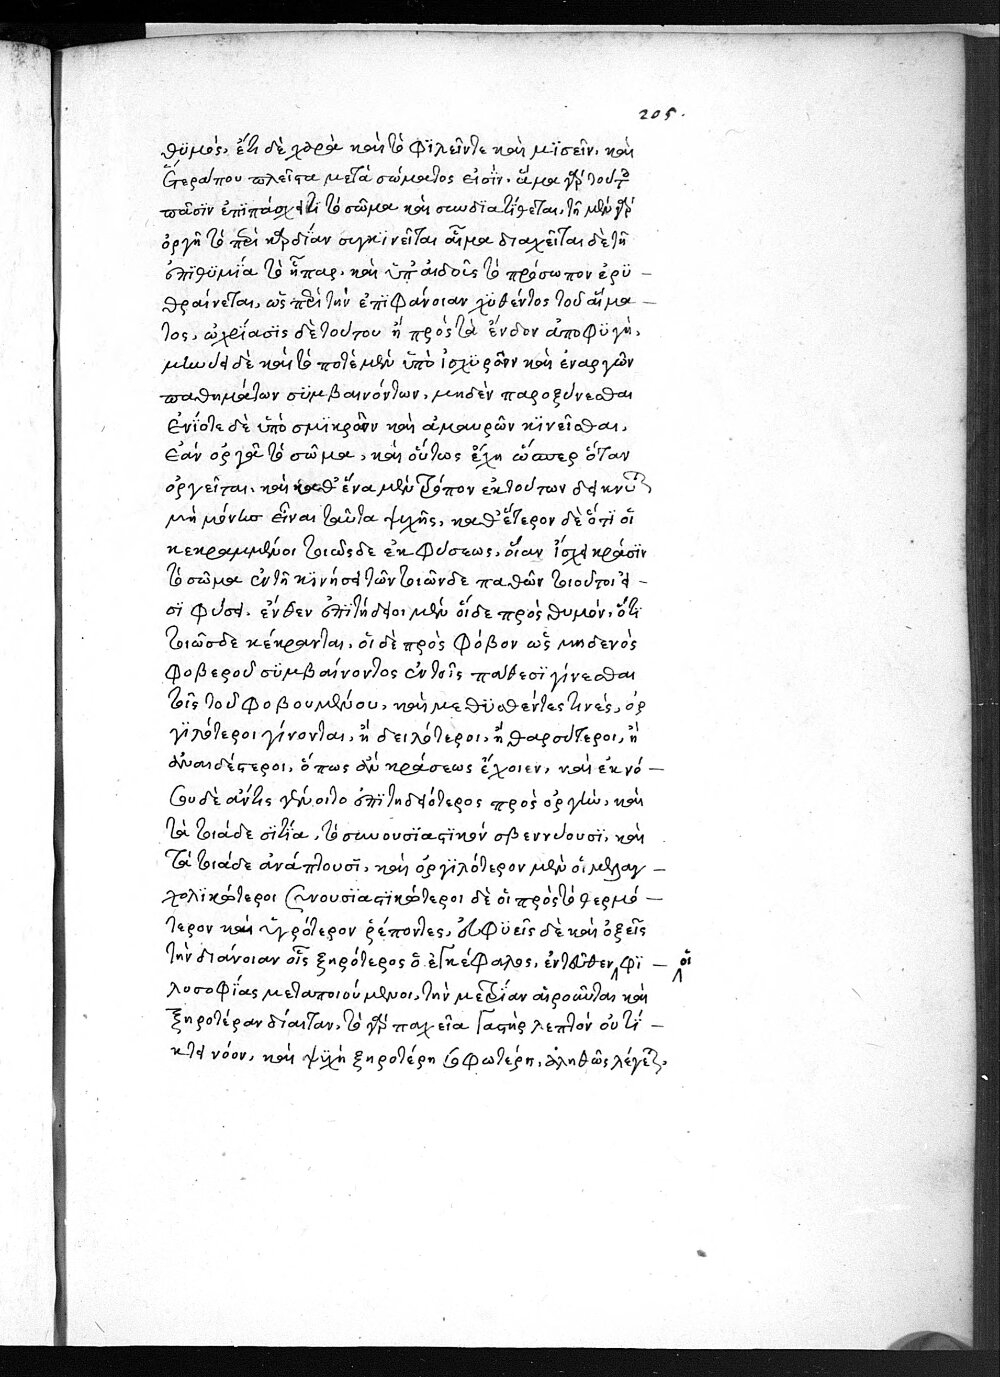 205.
θϋμὸς, ἔτι δὲ χαρὰ καὶ τὸ φϊλεῖντε καὶ μϊσεῖν. καὶ
πλεῖστα μετὰ σώματος εἰσὶν. ἅμα γὰρ τούτ
πᾶσϊν ἐπϊπάσχει τι τὸ σῶμα καὶ συνδϊατίθεται, τῇ μὲν γὰρ
ὀργῇ τὸ περὶ καρδίαν συγκϊνεῖται αἷμα διαχεῖται δὲ τῇ
ἐπϊθϋμΐᾳ τὸ ἧπαρ. καὶ ὑπ' αἰδοῦς τὸ πρόσωπον ἐρϋ –
θραίνεται, ὡς περὶ τὴν ἐπϊφάνοιαν χϋθέντος τοῦ αἵμα –
τος, ὠχρΐασϊς δὲ τούτου ἡ πρὸς τὰ ἔνδον ἀποφϋγή,
μηνύει δὲ καὶ τὸ ποτὲ μὲν ὑπὸ ἰσχϋρῶν καὶ ἐναργῶν
παθημάτων σϋμβαινόντων, μηδὲν παροξύνεσθαι
ἐνΐοτε δὲ ὑπὸ σμϊκρῶν καὶ ἀμαυρῶν κϊνεῖσθαι,
ἐὰν ὀργᾷ τὸ σῶμα, καὶ οὕτως ἔχῃ ὥσπερ ὅταν
ὀργεῖται. καὶ καθ' ἕνα μὲν τρόπον ἐκ τούτων δείκνυται
μὴ μόνης εἶναι ταῦτα ψϋχῆς, καθ' ἕτερον δὲ ὅτϊ οἱ
κεκραμμένοι τοιῶςδε ἐκ φύσεως, οἵαν ἴσχει κρᾶσϊν
τὸ σῶμα ἐν τῇ κϊνήσει τῶν τοιῶνδε παθῶν τοιοῦτοι εἰ –
σϊ φύσει. ἔνθεν ἐπϊτήδειοι μὲν οἵδε πρὸς θυμὸν, ὅτϊ
τοιῶσδε κέκρανται, οἱ δὲ πρὸς φόβον ὡς μηδενὸς
φοβεροῦ σϋμβαίνοντος ἐν τοῖς παθεσϊ γίνεσθαι
τοῖς τοῦ φοβουμένου, καὶ μεθϋσθέντες τινὲς, ὀρ
γϊλότεροι γίνονται, ἢ δειλότεροι, ἢ θαρσύτεροι, ἢ
ἀναιδέστεροι, ὅπως ἂν κράσεως ἔχοιεν, καὶ ἐκ νό –
σου δὲ ἄν τις γένοιτο ἐπϊτηδειότερος πρὸς ὀργὴν, καὶ
τὰ τοιάδε σϊτΐα, τὸ συνουσϊαστϊκὸν σβεννύουσϊ, καὶ
τὰ τοιάδε ἀνάπτουσϊ, καὶ ὀργϊλότερον μὲν οἱ μελαγ –
χολϊκώτεροι συνουσϊαστϊκώτεροι δὲ οἱ πρὸς τὸ θερμό –
τερον καὶ ὑγρότερον ῥέποντες, εὐφϋεῖς δὲ καὶ ὀξεῖς
τὴν διάνοιαν οἷς ξηρότερος ὁ ἐγκέφαλος, ἐντεῦθεν οἱ φϊ –
λοσοφΐας μεταποιούμενοι, τὴν μετρΐαν αἱροῦνται καὶ
ξηροτέραν δίαιταν, τὸ γὰρ παχεῖα γαστὴρ λεπτὸν οὐ τΐ –
κτει νόον, καὶ ψϋχὴ ξηροτέρη σοφωτέρη, ἀληθῶς λέγεται.